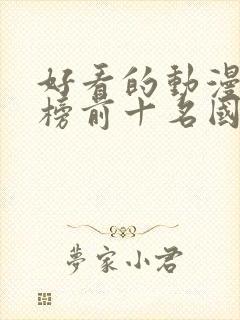 好看的動漫
榜前十名國
夢家小君